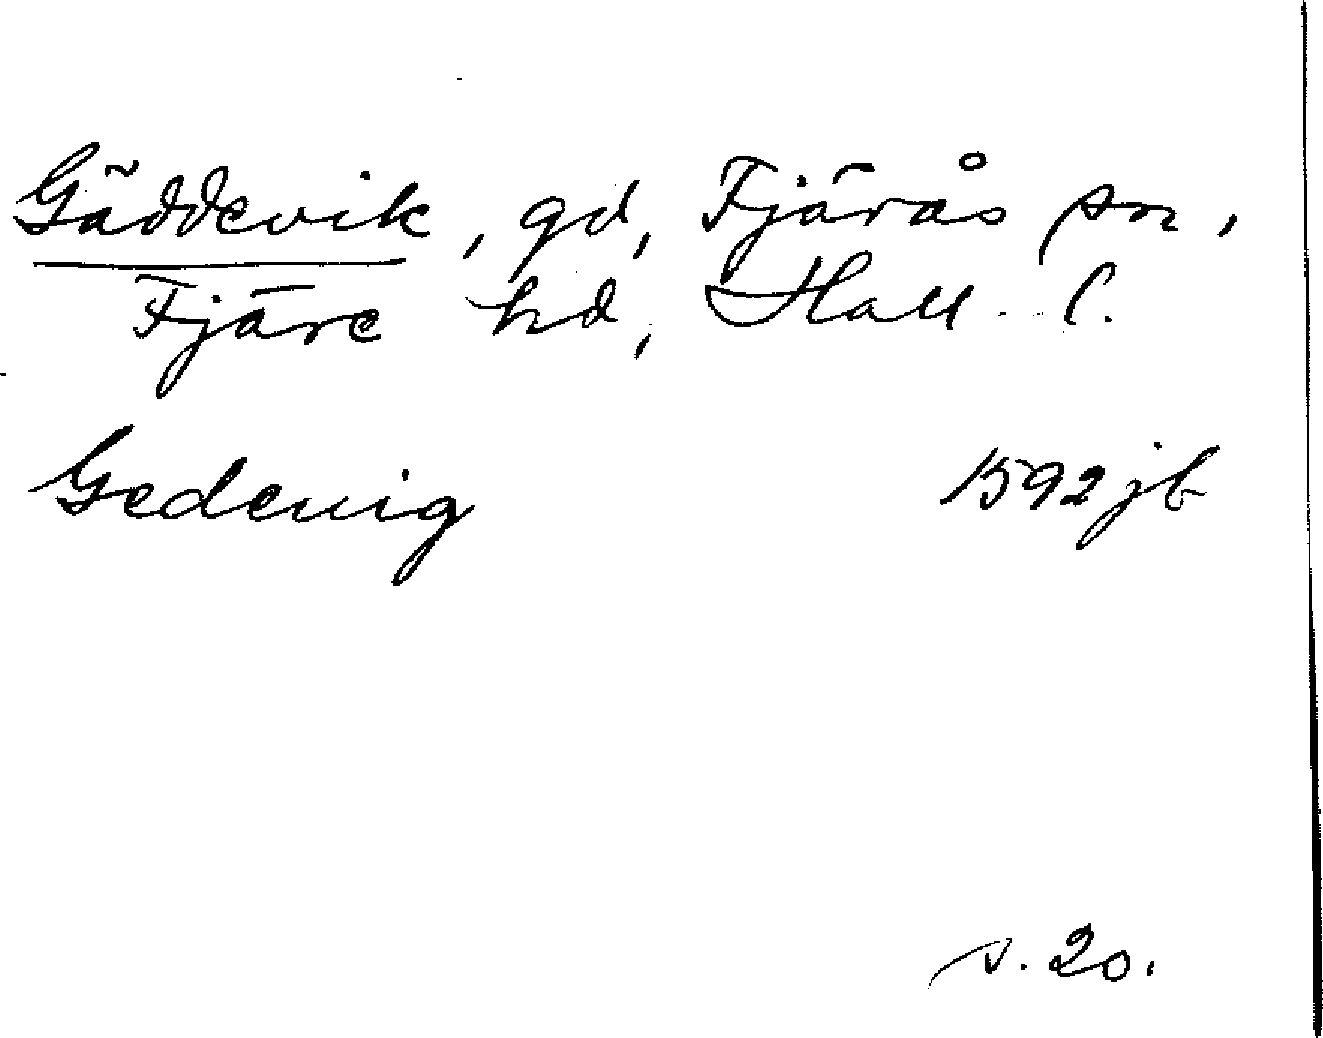 Gäddevik, gd, Fjärås sn,
Fjäre hd, Hall. l.
Gedeuig 1592 jb
s. 20.